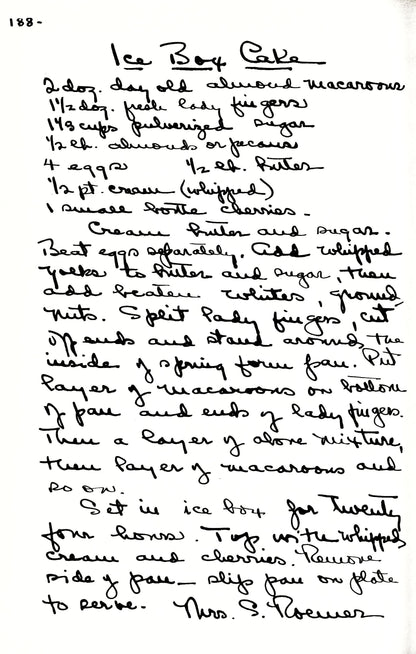 188-
Ice Box Cake
2 doz. day old almond macaroons
1 1/2 doz. fresh lady fingers
1 1/3 cups pulverized sugar
1/2 lb. almonds or pecans
4 eggs 1/2 lb. butter
1/2 pt. cream (whipped)
1 small bottle cherries.
Cream butter and sugar.
Beat eggs separately. Add whipped
yolks to butter and sugar, then
add beaten whites, ground
nuts. Split lady fingers, cut
off ends and stand around the
inside of spring form pan. Put
layer of macaroons on bottom
of pan and ends of lady fingers.
Then a layer of above mixture,
then layer of macaroons and
so on.
Set in ice box for twenty
four hours. Top with whipped
cream and cherries. Remove
side of pan - slip pan on plate
to serve. Mrs. S. Roemer